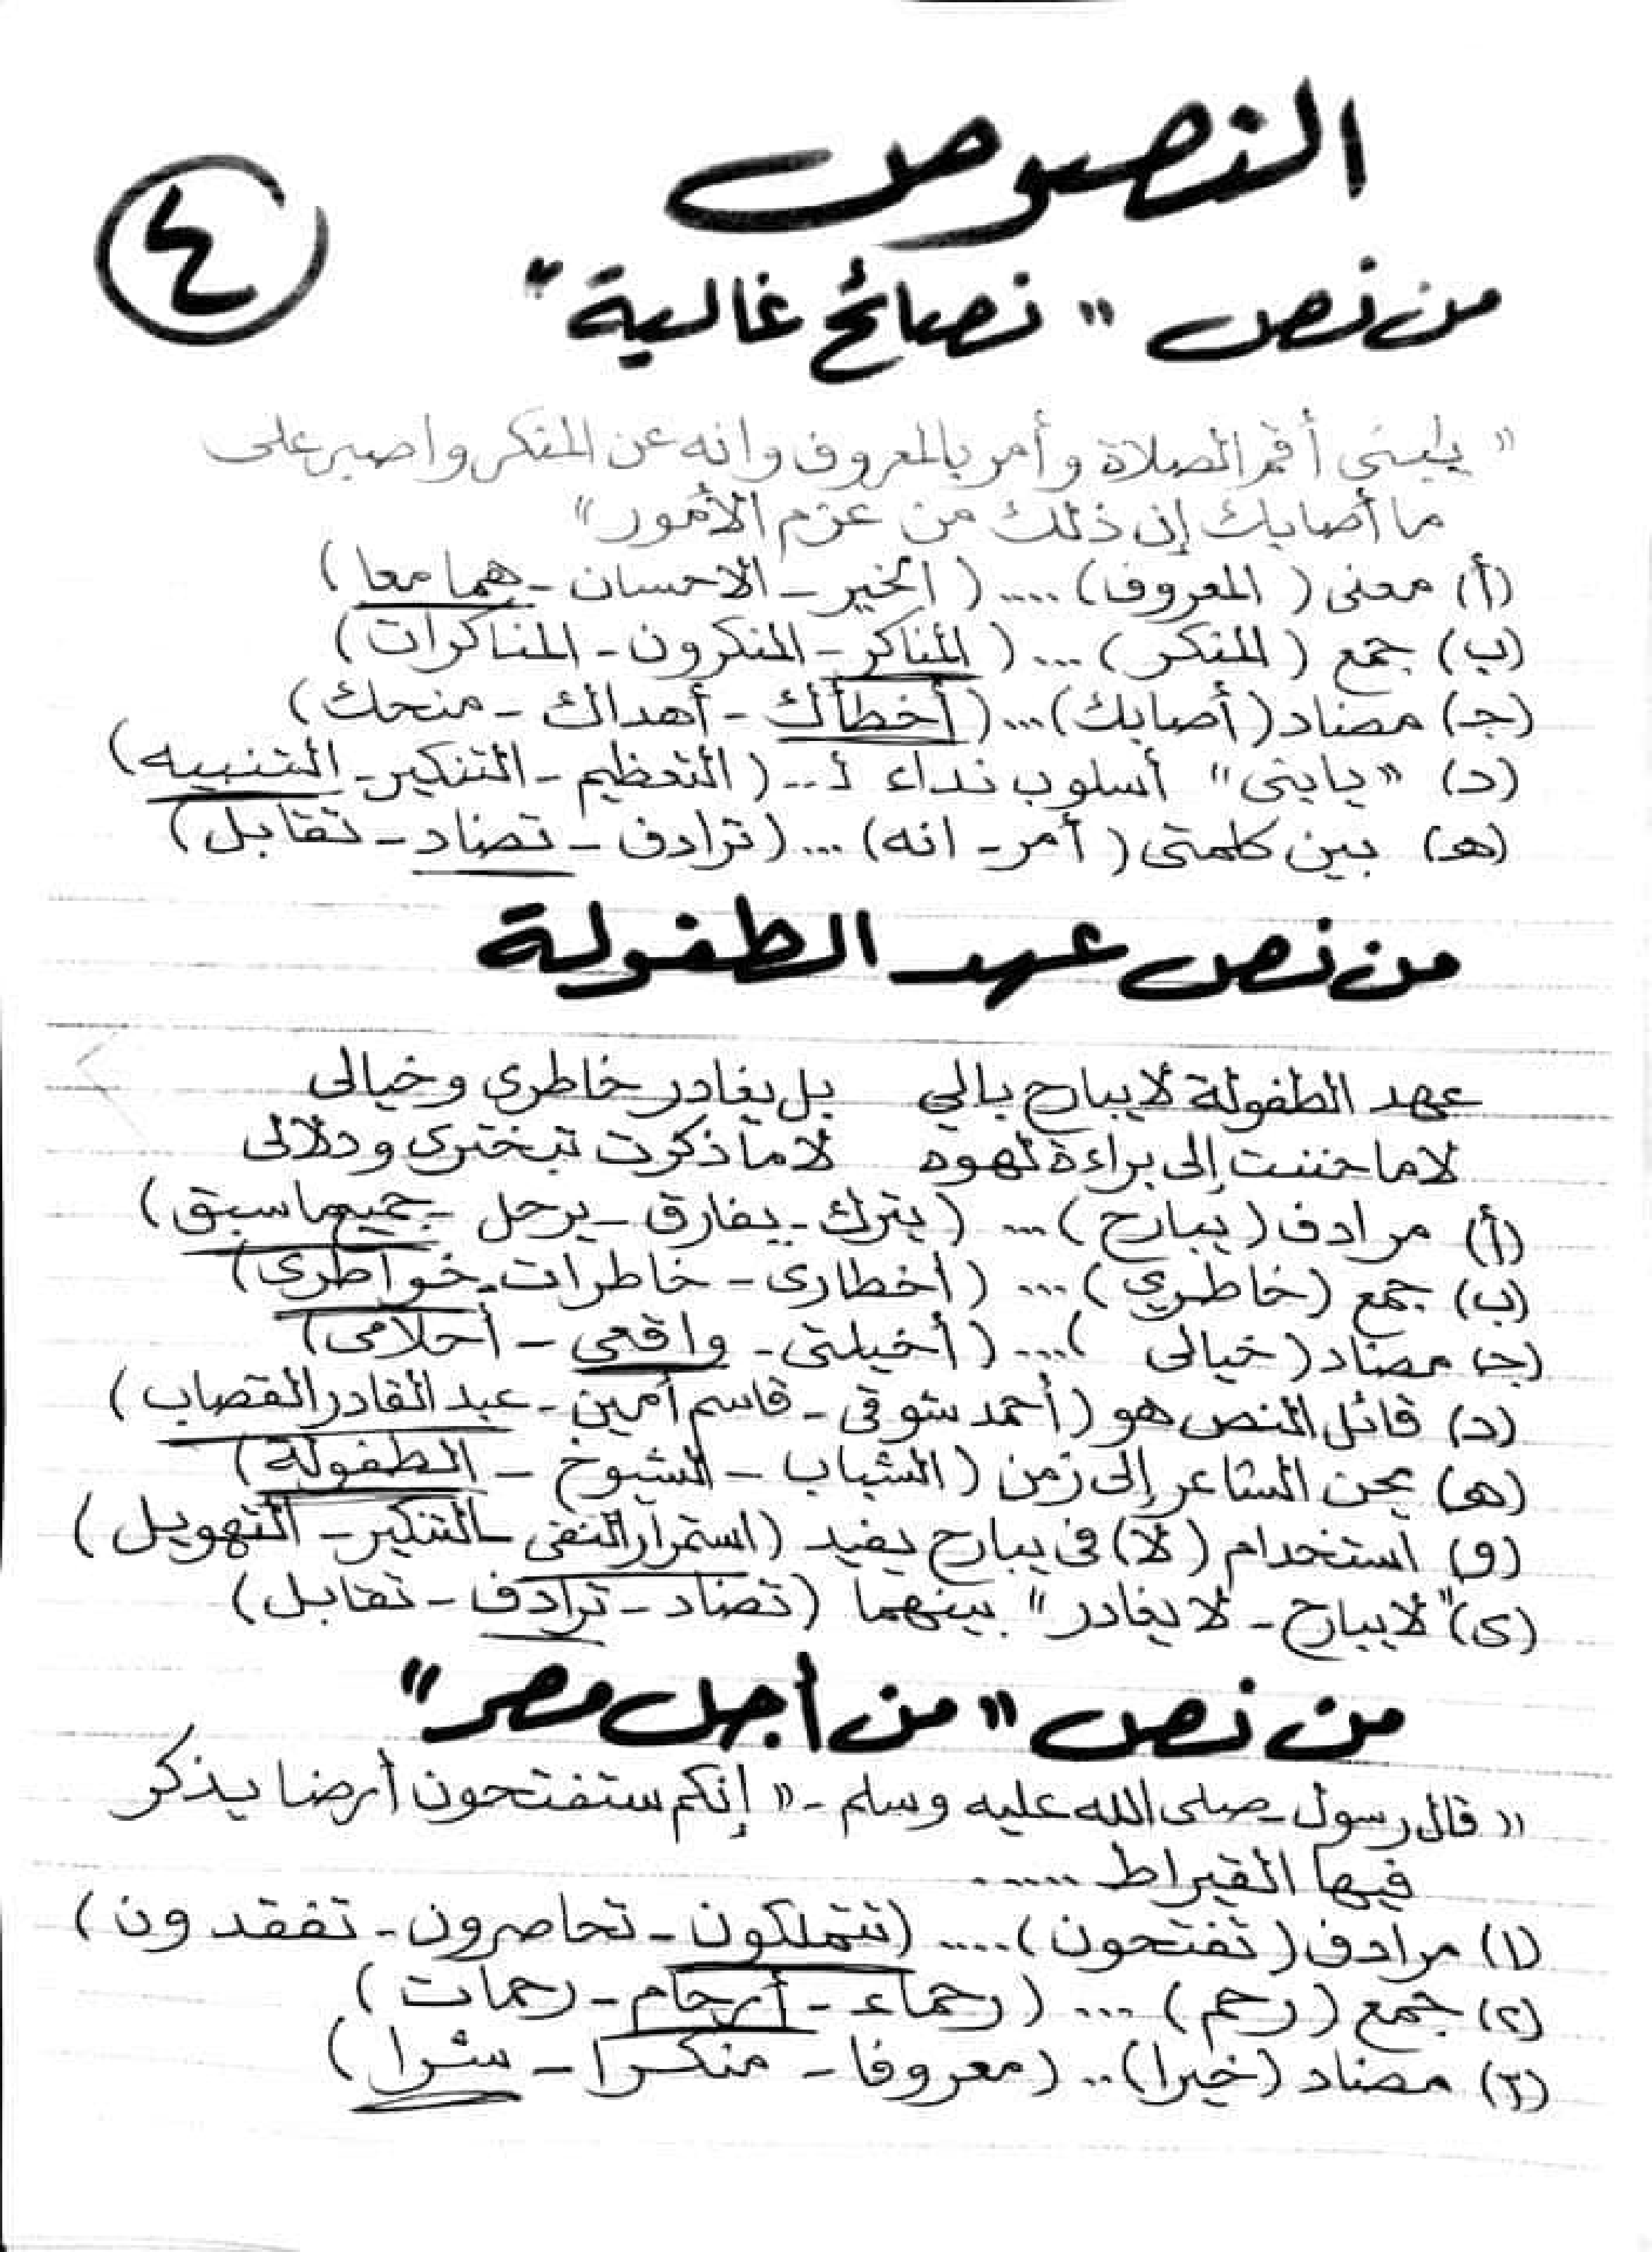 النصوص
٤
من نص "نصائح غالية"
"يابنى أقم الصلاة وأمر بالمعروف وانه عن المنكر واصبر على
ما أصابك إن ذلك من عزم الأمور"
(أ) معنى (المعروف) .... (الخير - الاحسان - هما معا)
(ب) جمع (المنكر) ... (المناكر - المنكرون - المناكرات)
(جـ) مضاد (أصابك) ... (أخطأك - أهداك - منحك)
(د) "يابنى" أسلوب نداء لـ ... (التعظيم - التنكير - التنبيه)
(هـ) بين كلمتى (أمر - انه) ... (ترادف - تضاد - تقابل)
من نص عهد الطفولة
عهد الطفولة لا يبارح بالي بل يغادر خاطري وخيالى
لاما حننت إلى براءة لهوه لاما ذكرت تبخترى ودلالى
(أ) مرادف (يبارح) ... (يترك - يفارق - يرحل - جميع ما سبق)
(ب) جمع (خاطري) ... (أخطارى - خاطرات - خواطرى)
(جـ) مضاد (خيالى) .... (أخيلتى - واقعى - أحلامى)
(د) قائل النص هو (أحمد شوقى - قاسم أمين - عبد القادر القصاب)
(هـ) يحن الشاعر إلى زمن (الشباب - الشيوخ - الطفولة)
(و) استخدام (لا) فى يبارح يفيد (استمرار النفى - التنكير - التهويل)
(ى) "لا يبارح - لا يغادر" بينهما (تضاد - ترادف - تقابل)
من نص "من أجل مصر"
"قال رسول - صلى الله عليه وسلم - "إنكم ستفتحون أرضا يذكر
فيها القيراط ......
(١) مرادف (تفتحون) .... (تتملكون - تحاصرون - تفقدون)
(٢) جمع (رحم) ... (رحماء - أرحام - رحمات)
(٣) مضاد (خيرا) .. (معروفا - منكرا - شرا)